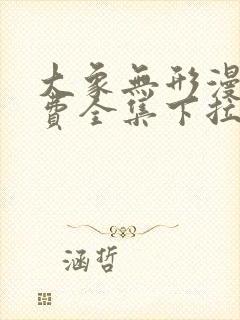 大象無形漫
費全集下拉
涵哲